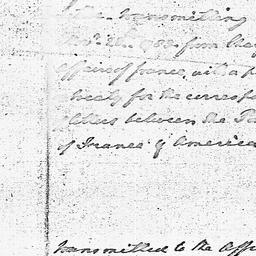 the transmitting
from the
affairs of france, with a p
treaty for the corresp
between the
of France & America
transmitted to the Offi